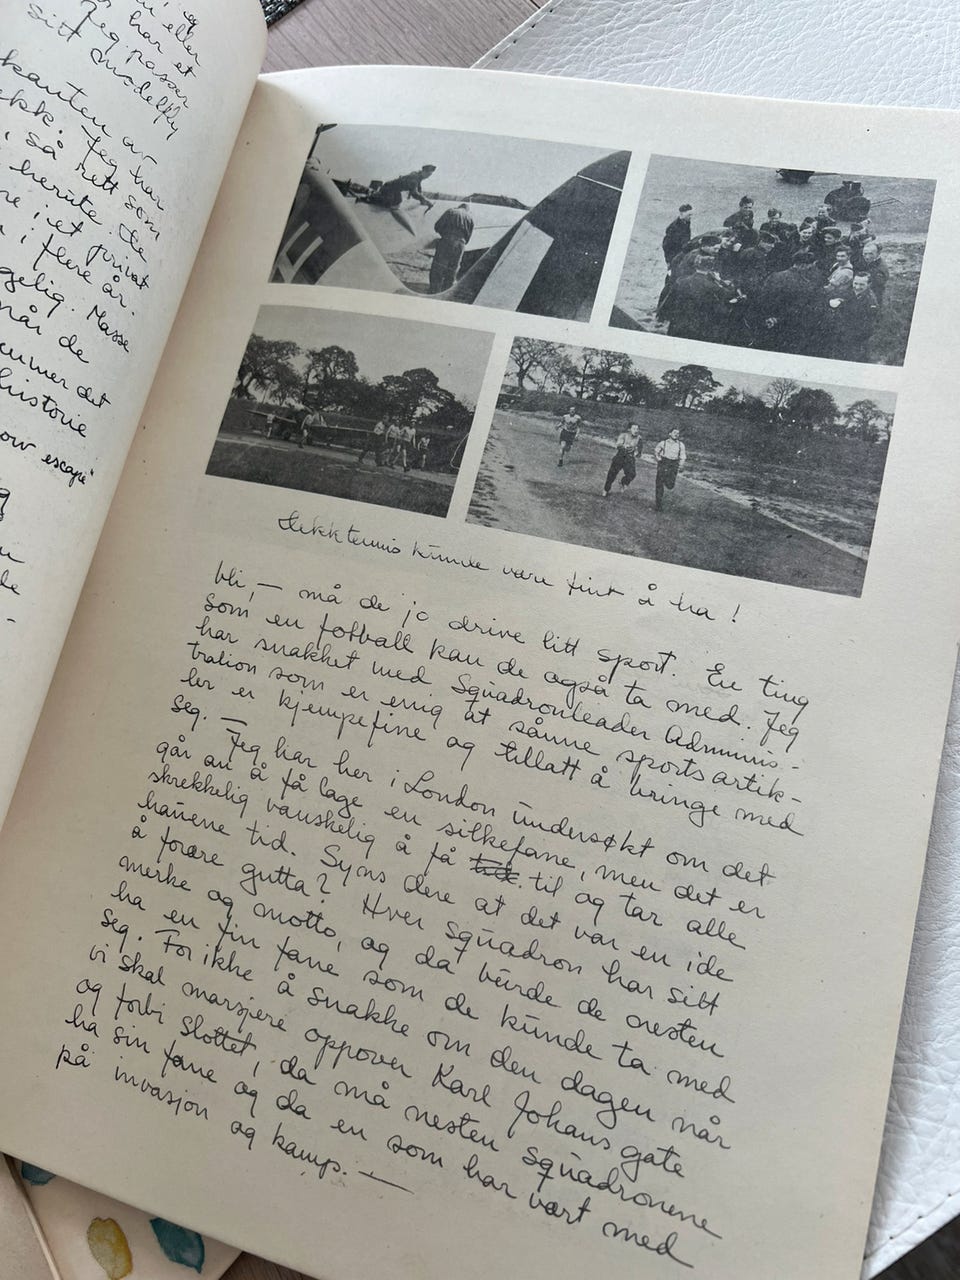 og
eller
har et
Jeg passer
sitt modelfly
kanten av
Jeg har
så rett som
herute. De
i et privat
i flere år.
Masse
når de
det
historie
escape"
de
Dekktennis kunde være fint å ha!
bli, — må de jo drive litt sport. En ting
som en fotball kan de også ta med. Jeg
har snakket med Squadronleader Adminis-
tration som er enig at sånne sportsartik-
ler er kjempefine og tillatt å bringe med
seg. — Jeg har her i London undersøkt om det
går an å få lage en silkefane, men det er
skrekkelig vanskelig å få til og tar alle
hånene tid. Syns dere at det var en ide
å forære gutta? Hver squadron har sitt
merke og motto, og da burde de nesten
ha en fin fane som de kunde ta med
seg. For ikke å snakke om den dagen når
vi skal marsjere oppover Karl Johans gate
og forbi slottet, da må nesten squadronene
ha sin fane og da en som har vært med
på invasjon og kamp. —